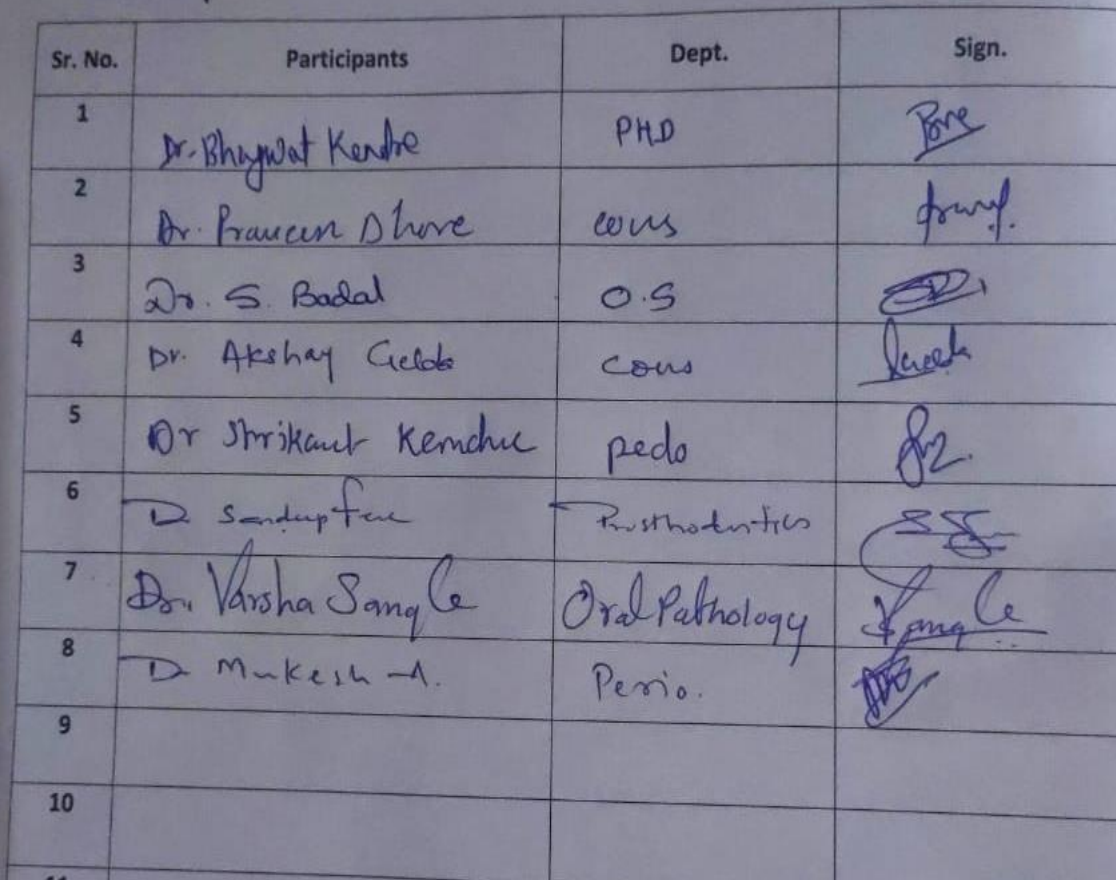 Sr. No. Participants Dept. Sign.
1 Dr. Bhagwat Kendre PHD
2 Dr. Praveen Dhore cons
3 Dr. S. Badal O.S
4 Dr. Akshay cons
5 Dr Shrikant Kemdhe pedo
6 D. Sandeep Prosthodontics
7 Dr. Varsha Sangle Oral Pathology Sangle
8 D. Mukesh A. Perio.
9
10